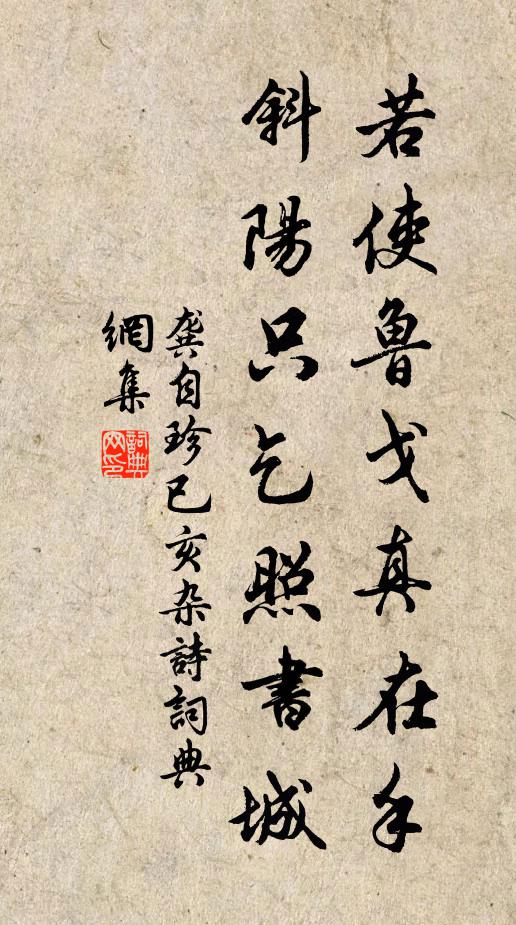 若使魯戈真在手
斜陽只乞照書城
龔自珍己亥杂詩詞典
網集
詞典
网印